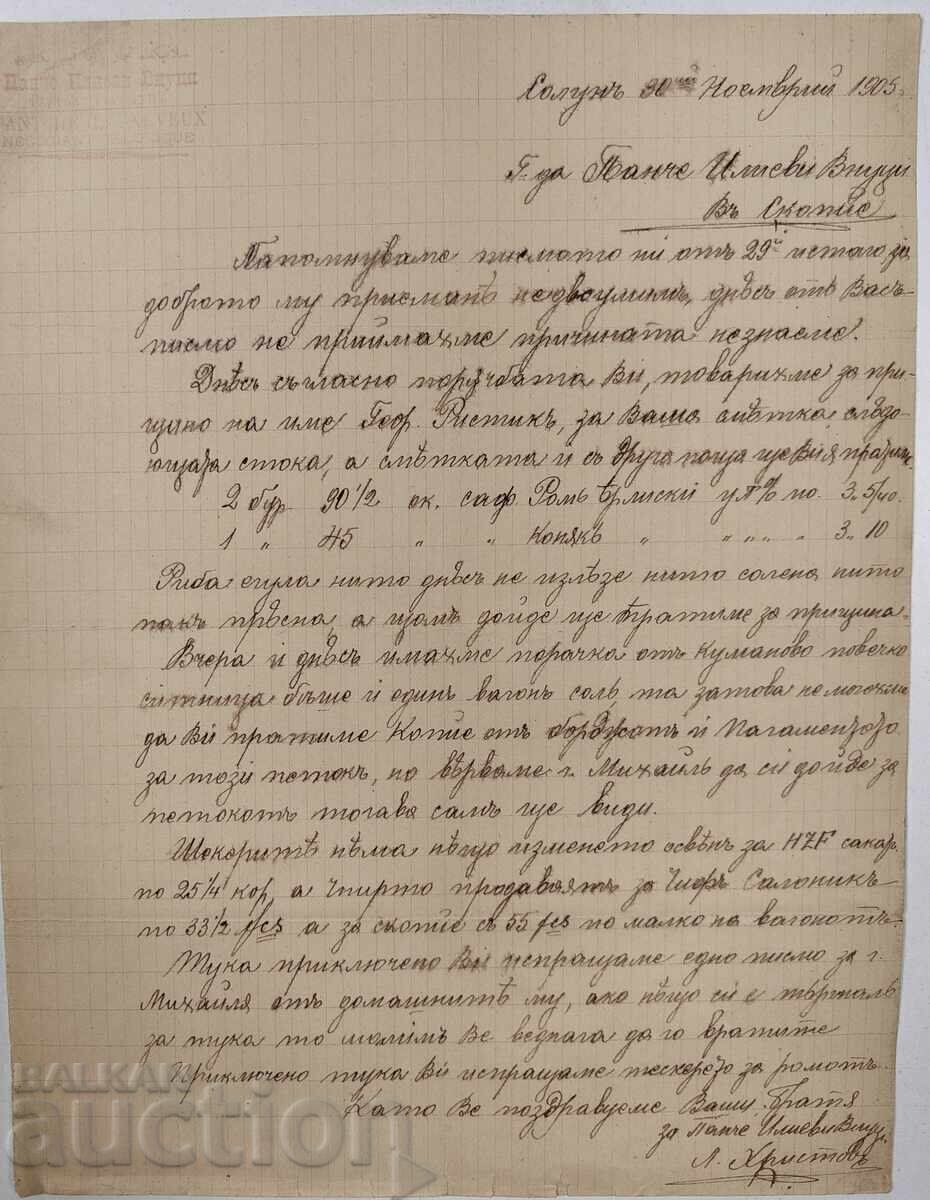 Солунъ 30ий Ноемврий 1905
Г-да Панче Илиеви Внуци
Въ Скопие
Напомнуваме писмото ни отъ 29й истаго, за
доброто му приемане недвоумимъ, днѣсъ отъ Васъ
писмо не приймахме причината незнаеме.
Днѣсъ съгласно порѫчбата Ви, товарихме за при-
щино на име Геор. Ристикъ, за Ваша смѣтка слѣдо-
ющата стока, а смѣтката и съ друга поща ще Ви я пратиме
2 бур. 90 1/2 ок. саф. Ромъ 3. 5/40.
1 " 45 " " Конякъ " " " " " 3.. 10
Риба сгула нито днѣсъ не излѣзе нито солена нито
пакъ прѣсна, а щомъ дойде ще вратиме за прищина
Вчера и днѣсъ имахме порачка отъ Куманово повечко
ситница бѣше и единъ вагонъ соль та затова неможехме
да Ви пратиме Копие отъ и
за този петокъ, но вѣрваме г. Михаилъ да си дойде за
петокотъ тогава самъ ще види.
Шекеритѣ нѣма нѣщо изменето освѣнъ за HZF сакаръ
по 25 1/4 кор, а спирто продаваятъ за Чифъ Салоникъ
по 33 1/2 fcs а за скопие съ 55 fcs по малко на вагонотъ.
Тука приключено Ви испращаме едно писмо за г.
Михаиля отъ домашнитѣ му, ако нѣщо си е тѫргналъ
за тука то молимъ Ве веднага да го вратите
Приключено тука Ви испращаме тескерето за ромотъ.
Като Ве поздравуеме Ваши Братя
за Панче Илиеви Внуци
Л. Христовъ
BALKAN
auction